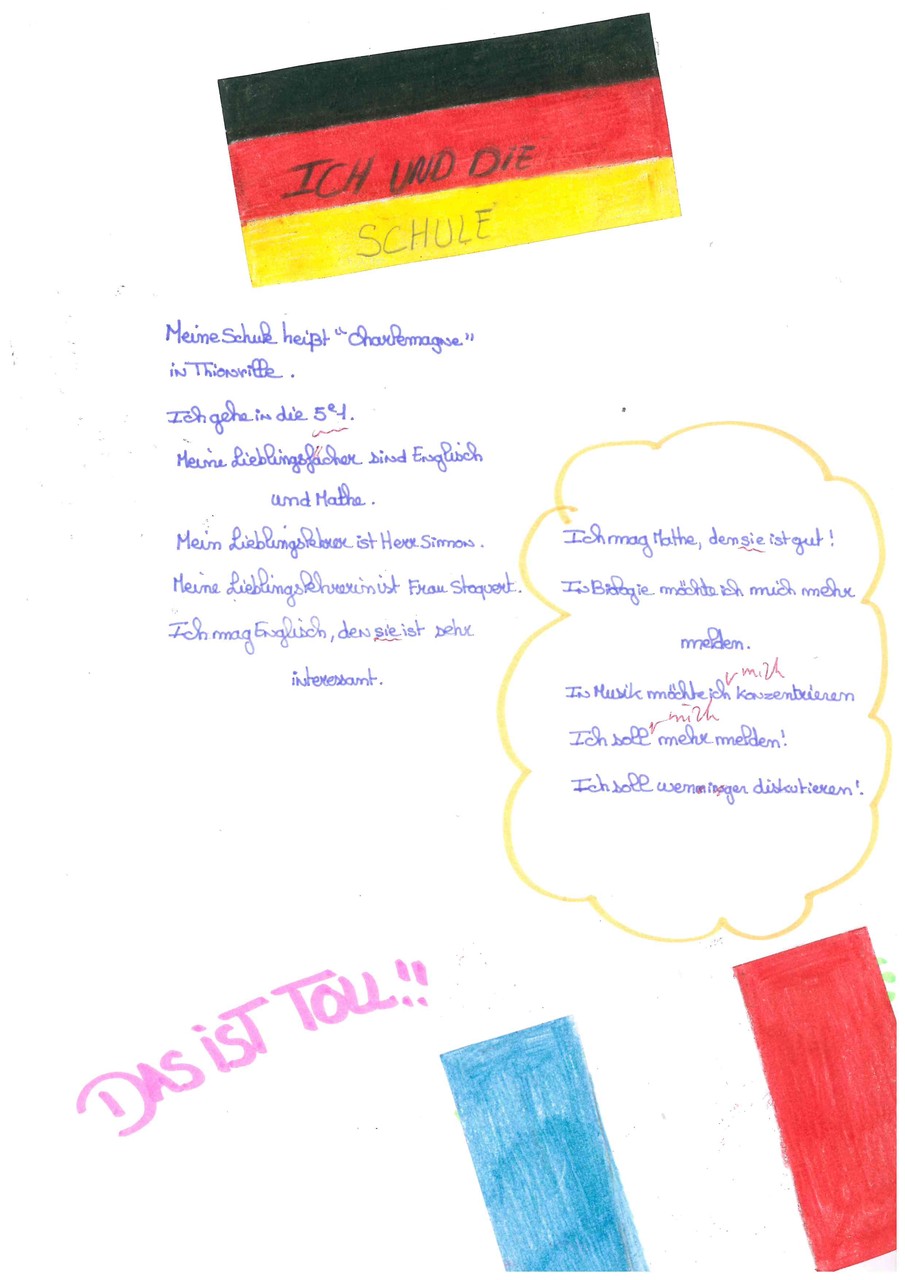 ICH UND DIE
SCHULE
Meine Schule heißt "Charlemagne"
in Thionville.
Ich gehe in die 5e1.
Meine Lieblingsfächer sind Englisch
und Mathe.
Mein Lieblingslehrer ist Herr Simon.
Meine Lieblingslehrerin ist Frau Staquert.
Ich mag Englisch, den sie ist sehr
interessant.
Ich mag Mathe, den sie ist gut!
In Biologie möchte ich mich mehr
melden.
mich
In Musik möchte ich konzentrieren
mich
Ich soll mehr melden!
Ich soll weniger diskutieren!
DAS IST TOLL!!